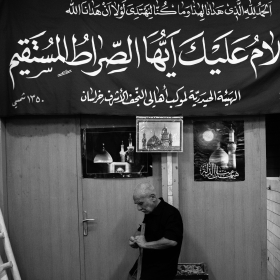 الحمد لله الذي هدانا لهذا وما كنا لنهتدي لولا أن هدانا الله
لام عليك ايها الصراط المستقيم
الهيئة الحيدرية لموكب أهالي النجف الأشرف خراسان
١٣٥٠ شمسي